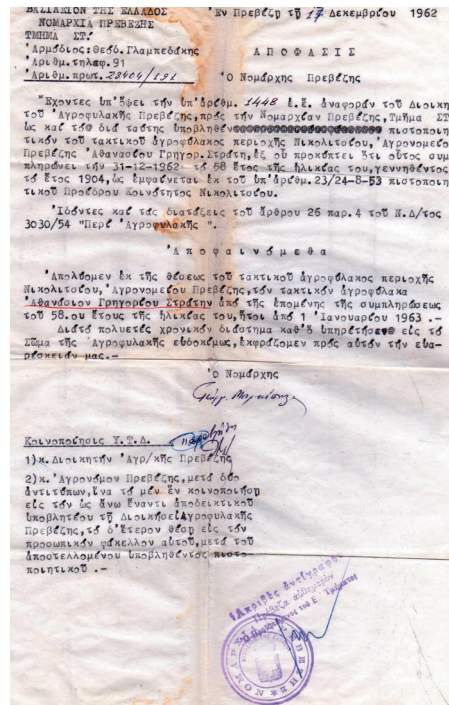 ΒΑΣΙΛΕΙΟΝ ΤΗΣ ΕΛΛΑΔΟΣ
Ἐν Πρεβέζῃ τῇ 17 Δεκεμβρίου 1962
ΝΟΜΑΡΧΙΑ ΠΡΕΒΕΖΗΣ
ΤΜΗΜΑ ΣΤ'
Ἁρμόδιος: Θεόδ. Γλαμπεδάκης
Ἀριθμ. τηλεφ. 91
Ἀριθμ. πρωτ. 23404/191
Α Π Ο Φ Α Σ Ι Σ
Ὁ Νομάρχης Πρεβέζης
Ἔχοντες ὑπ' ὄψει τήν ὑπ' ἀριθμ. 1448 ἐ.ἔ. ἀναφοράν τοῦ Διοικη
τοῦ Ἀγροφυλακῆς Πρεβέζης, πρός τήν Νομαρχίαν Πρεβέζης, Τμῆμα ΣΤ
ὡς καί τό διά ταύτης ὑποβληθέν πιστοποιη
τικόν τοῦ τακτικοῦ ἀγροφύλακος περιοχῆς Νικολιτσίου, Ἀγρονομείου
Πρεβέζης Ἀθανασίου Γρηγορ. Στράτη, ἐξ οὗ προκύπτει ὅτι οὗτος συμ
πληρώνει τήν 31-12-1962 τό 68 ἔτος τῆς ἡλικίας του, γεννηθέντος
τό ἔτος 1904, ὡς ἐμφαίνεται ἐκ τοῦ ὑπ' ἀριθμ. 23/24-8-53 πιστοποιη
τικοῦ Προέδρου Κοινότητος Νικολιτσίου.
Ἰδόντες καί τάς διατάξεις τοῦ ἄρθρου 26 παρ. 4 τοῦ Ν.Δ/τος
3030/54 "Περί Ἀγροφυλακῆς ".
Ἀ π ο φ α ι ν ό μ ε θ α
Ἀπολύομεν ἐκ τῆς θέσεως τοῦ τακτικοῦ ἀγροφύλακος περιοχῆς
Νικολιτσίου, Ἀγρονομείου Πρεβέζης, τόν τακτικόν ἀγροφύλακα
Ἀθανάσιον Γρηγορίου Στράτην ἀπό τῆς ἑπομένης τῆς συμπληρώσεως
τοῦ 58.ου ἔτους τῆς ἡλικίας του, ἤτοι ἀπό 1 Ἰανουαρίου 1963 .-
Διά τό πολυετές χρονικόν διάστημα καθ' ὅ ὑπηρέτησεν εἰς τό
Σῶμα τῆς Ἀγροφυλακῆς εὐδοκίμως, ἐκφράζομεν πρός αὐτόν τήν εὐα-
ρέσκειάν μας .-
Ὁ Νομάρχης
Κοινοποίησις Υ.Τ.Δ.
1)κ. Διοικητήν Ἀγρ/κῆς Πρεβέζης
2)κ. Ἀγρονόμον Πρεβέζης, μετά δύο
ἀντιτύπων, ἵνα τό μέν ἕν κοινοποιήσῃ
εἰς τόν ὡς ἄνω ἔναντι ἀποδεικτικοῦ
ὑποβλητέου τῇ Διοικήσει Ἀγροφυλακῆς
Πρεβέζης, τό δ' ἕτερον θέσῃ εἰς τόν
προσωπικόν φάκελλον αὐτοῦ, μετά τοῦ
ἀποστελλομένου ὑποβληθέντος πιστο-
ποιητικοῦ .-
Ἀκριβές ἀντίγραφον
Πρέβεζα αὐθημερόν